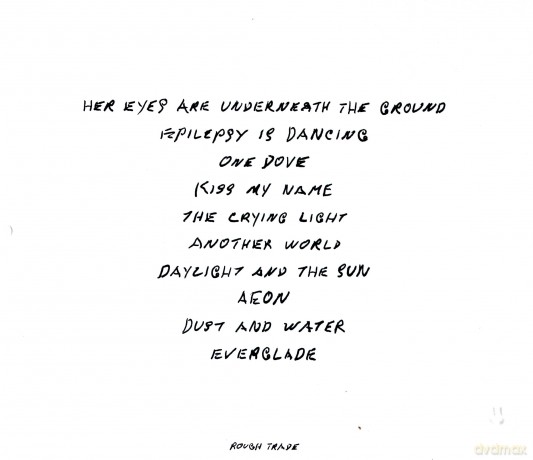 HER EYES ARE UNDERNEATH THE GROUND
EPILEPSY IS DANCING
ONE DOVE
KISS MY NAME
THE CRYING LIGHT
ANOTHER WORLD
DAYLIGHT AND THE SUN
AEON
DUST AND WATER
EVERGLADE
ROUGH TRADE
dvdmax